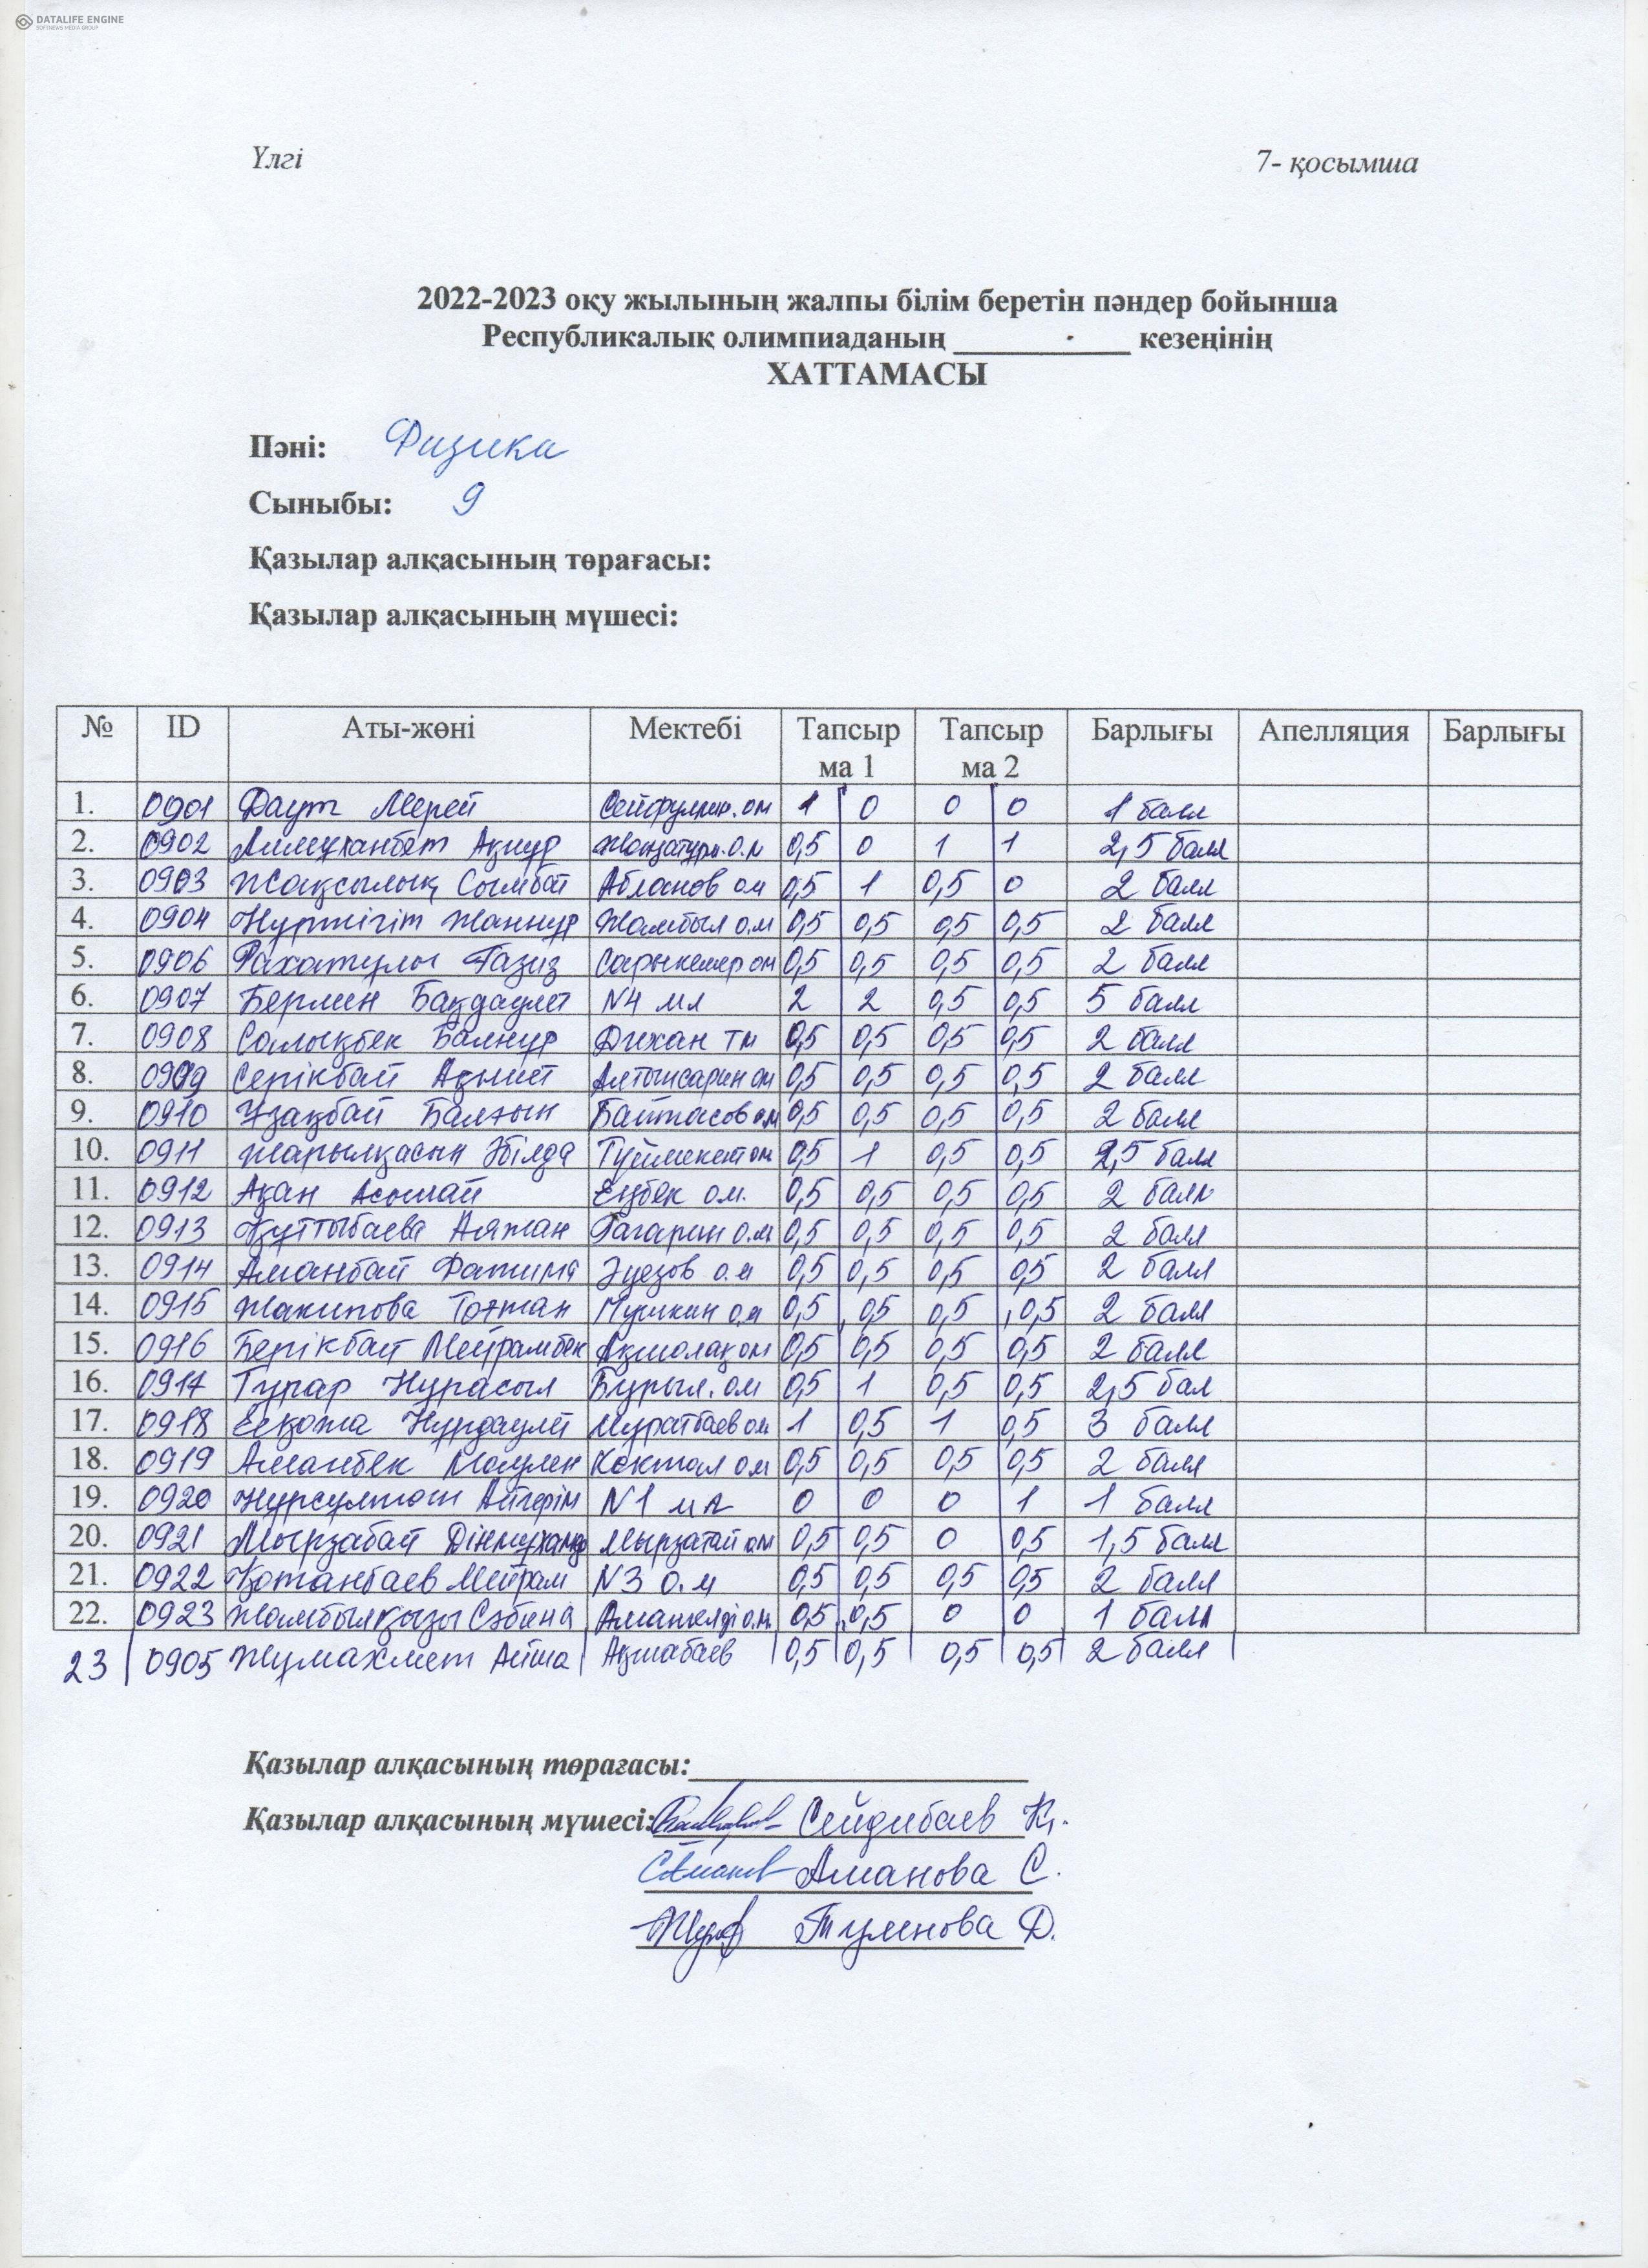 DATALIFE ENGINE
SOFTNEWS MEDIA GROUP
Үлгі 7- қосымша
2022-2023 оқу жылының жалпы білім беретін пәндер бойынша
Республикалық олимпиаданың ____________ кезеңінің
ХАТТАМАСЫ
Пәні: Физика
Сыныбы: 9
Қазылар алқасының төрағасы:
Қазылар алқасының мүшесі:
№ ID Аты-жөні Мектебі Тапсыр Тапсыр Барлығы Апелляция Барлығы
ма 1 ма 2
1. 0901 Даут Мерей Сейфуллин.ом 1 0 0 0 1 балл
2. 0902 Алмуханбет Ақнұр 0,5 0 1 1 2,5 балл
3. 0903 Жақсылық Сымбат Абланов ом 0,5 1 0,5 0 2 балл
4. 0904 Нұржігіт Жаннұр Жамбыл о.м 0,5 0,5 0,5 0,5 2 балл
5. 0906 Рахатұлы Ғазиз Сарыкемер ом 0,5 0,5 0,5 0,5 2 балл
6. 0907 Берлин Бақдаулет N4 мл 2 2 0,5 0,5 5 балл
7. 0908 Салықбек Балнұр Дихан тм 0,5 0,5 0,5 0,5 2 балл
8. 0909 Серікбай Ақниет Алтынсарин ом 0,5 0,5 0,5 0,5 2 балл
9. 0910 Ұзақбай Балғын Байтасов ом 0,5 0,5 0,5 0,5 2 балл
10. 0911 Жарылқасын Әбілда Түймекент ом 0,5 1 0,5 0,5 2,5 балл
11. 0912 Ақан Асылай Еңбек ом. 0,5 0,5 0,5 0,5 2 балл
12. 0913 Құттыбаева Аяжан Гагарин о.м 0,5 0,5 0,5 0,5 2 балл
13. 0914 Аманбай Фатима Әуезов о.м 0,5 0,5 0,5 0,5 2 балл
14. 0915 Жакипова Тоғжан Пушкин о.м 0,5 0,5 0,5 0,5 2 балл
15. 0916 Берікбай Мейрамбек Ақшолақ ом 0,5 0,5 0,5 0,5 2 балл
16. 0917 Тұрар Нұрасыл Бурыл.ом 0,5 1 0,5 0,5 2,5 бал
17. 0918 Есқожа Нұрдаулет Муратбаев ом 1 0,5 1 0,5 3 балл
18. 0919 Аманбек Маулен Көктал ом 0,5 0,5 0,5 0,5 2 балл
19. 0920 Айгерім N1 0 0 0 1 1 балл
20. 0921 Мырзабай Дінмұхамед Мырзатай ом 0,5 0,5 0 0,5 1,5 балл
21. 0922 Қожанбаев Мейрам N3 о.м 0,5 0,5 0,5 0,5 2 балл
22. 0923 Жамбылқызы Сабина Амангелді о.м. 0,5 0,5 0 0 1 балл
23 0905 Жумахмет Айша Ақшабаев 0,5 0,5 0,5 0,5 2 балл
Қазылар алқасының төрағасы:____________________
Қазылар алқасының мүшесі: Сейдибаев Қ.
Аманова С.
Туленова Д.